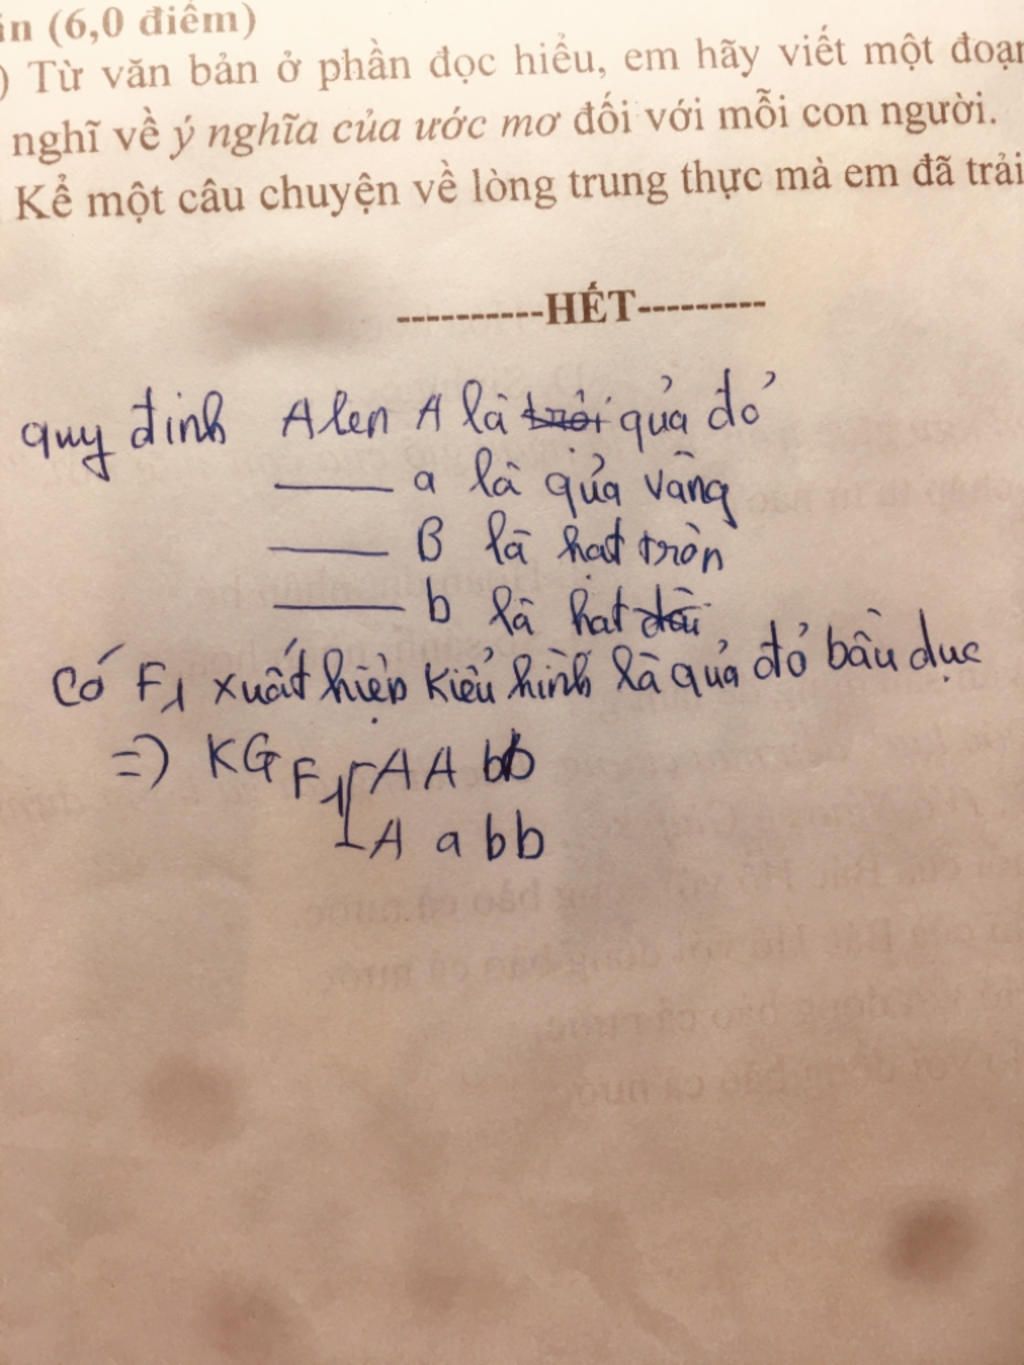 ăn (6,0 điểm)
) Từ văn bản ở phần đọc hiểu, em hãy viết một đoạn
nghĩ về ý nghĩa của ước mơ đối với mỗi con người.
Kể một câu chuyện về lòng trung thực mà em đã trải
----------HẾT---------
quy định Alen A là quả đỏ
a là quả vàng
B là hạt tròn
b là hạt dài
Có F1 xuất hiện kiểu hình là quả đỏ bầu dục
=> KG F1 AAbb
Aabb